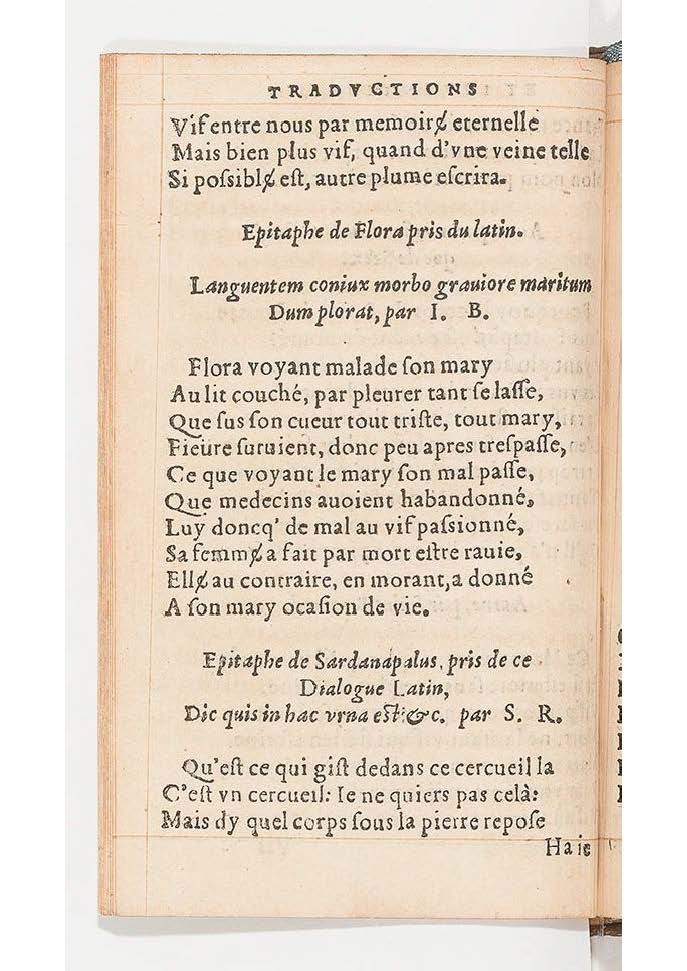 TRADVCTIONS
Vif entre nous par memoirɇ eternelle
Mais bien plus vif, quand d'vne veine telle
Si poſsiblɇ eſt, autre plume eſcrira.
Epitaphe de Flora pris du latin.
Languentem coniux morbo grauiore maritum
Dum plorat, par I. B.
Flora voyant malade ſon mary
Au lit couché, par pleurer tant ſe laſſe,
Que ſus ſon cueur tout triſte, tout mary,
Fieure ſuruient, donc peu apres treſpaſſe,
Ce que voyant le mary ſon mal paſſe,
Que medecins auoient habandonné,
Luy doncq' de mal au vif paſsionné,
Sa femmɇ a fait par mort eſtre rauie,
Ellɇ au contraire, en morant, a donné
A ſon mary ocaſion de vie.
Epitaphe de Sardanapalus, pris de ce
Dialogue Latin,
Dic quis in hac vrna eſt: &c. par S. R.
Qu'eſt ce qui giſt dedans ce cercueil la
C'eſt vn cercueil: Ie ne quiers pas celà:
Mais dy quel corps ſous la pierre repoſe
Haie